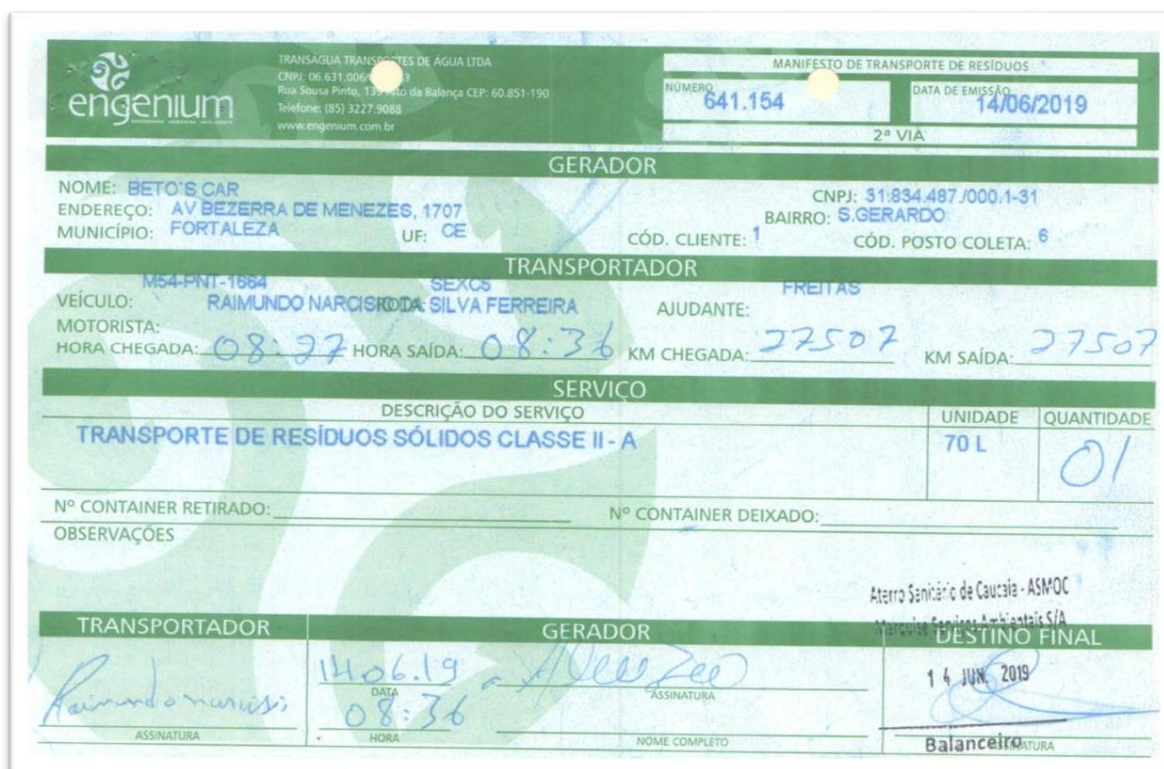 engenium
TRANSAGUA TRANSPORTES DE ÁGUA LTDA
CNPJ: 06.631.006/ 3
Rua Sousa Pinto, 13 Alto da Balança CEP: 60.851-190
Telefone: (85) 3227.9088
www.engenium.com.br
MANIFESTO DE TRANSPORTE DE RESÍDUOS
NÚMERO 641.154
DATA DE EMISSÃO 14/06/2019
2ª VIA
GERADOR
NOME: BETO'S CAR CNPJ: 31.834.487./000.1-31
ENDEREÇO: AV BEZERRA DE MENEZES, 1707 BAIRRO: S.GERARDO
MUNICÍPIO: FORTALEZA UF: CE CÓD. CLIENTE: 1 CÓD. POSTO COLETA: 6
TRANSPORTADOR
M54-PNT-1664 SEXC5 FREITAS
VEÍCULO: RAIMUNDO NARCISO DA SILVA FERREIRA AJUDANTE:
MOTORISTA:
HORA CHEGADA: 08:27 HORA SAÍDA: 08:36 KM CHEGADA: 27507 KM SAÍDA: 27507
SERVIÇO
DESCRIÇÃO DO SERVIÇO UNIDADE QUANTIDADE
TRANSPORTE DE RESÍDUOS SÓLIDOS CLASSE II - A 70 L 01
Nº CONTAINER RETIRADO: Nº CONTAINER DEIXADO:
OBSERVAÇÕES
Aterro Sanitário de Caucaia - ASMOC
Marquise Serviços Ambientais S/A
TRANSPORTADOR GERADOR DESTINO FINAL
14.06.19
14 JUN. 2019
DATA ASSINATURA
Raimundo narciso
08:36
ASSINATURA HORA NOME COMPLETO Balanceiro ASSINATURA